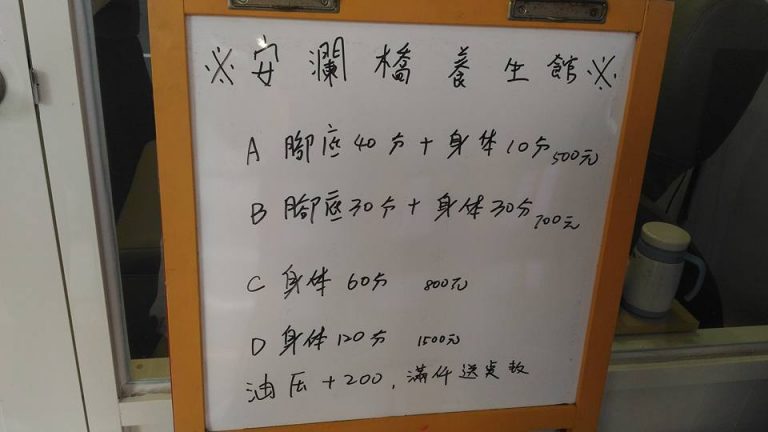 ※安瀾橋養生館※
A 腳底40分+身体10分500元
B 腳底30分+身体30分700元
C 身体 60分 800元
D 身体120分 1500元
油压+200,滿仟送点数